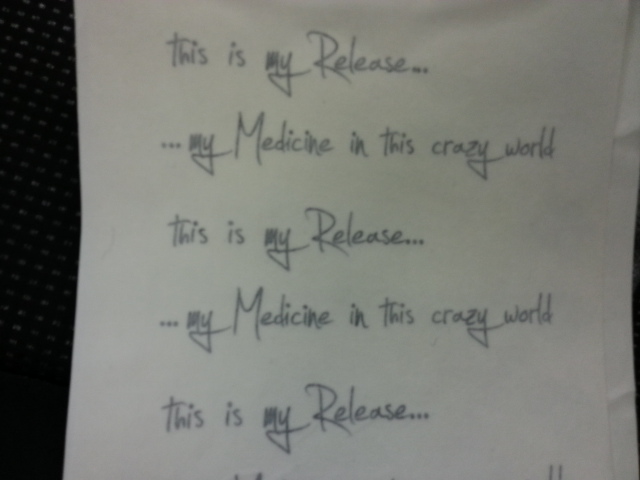 this is my Release...
...my Medicine in this crazy world
this is my Release...
...my Medicine in this crazy world
this is my Release...